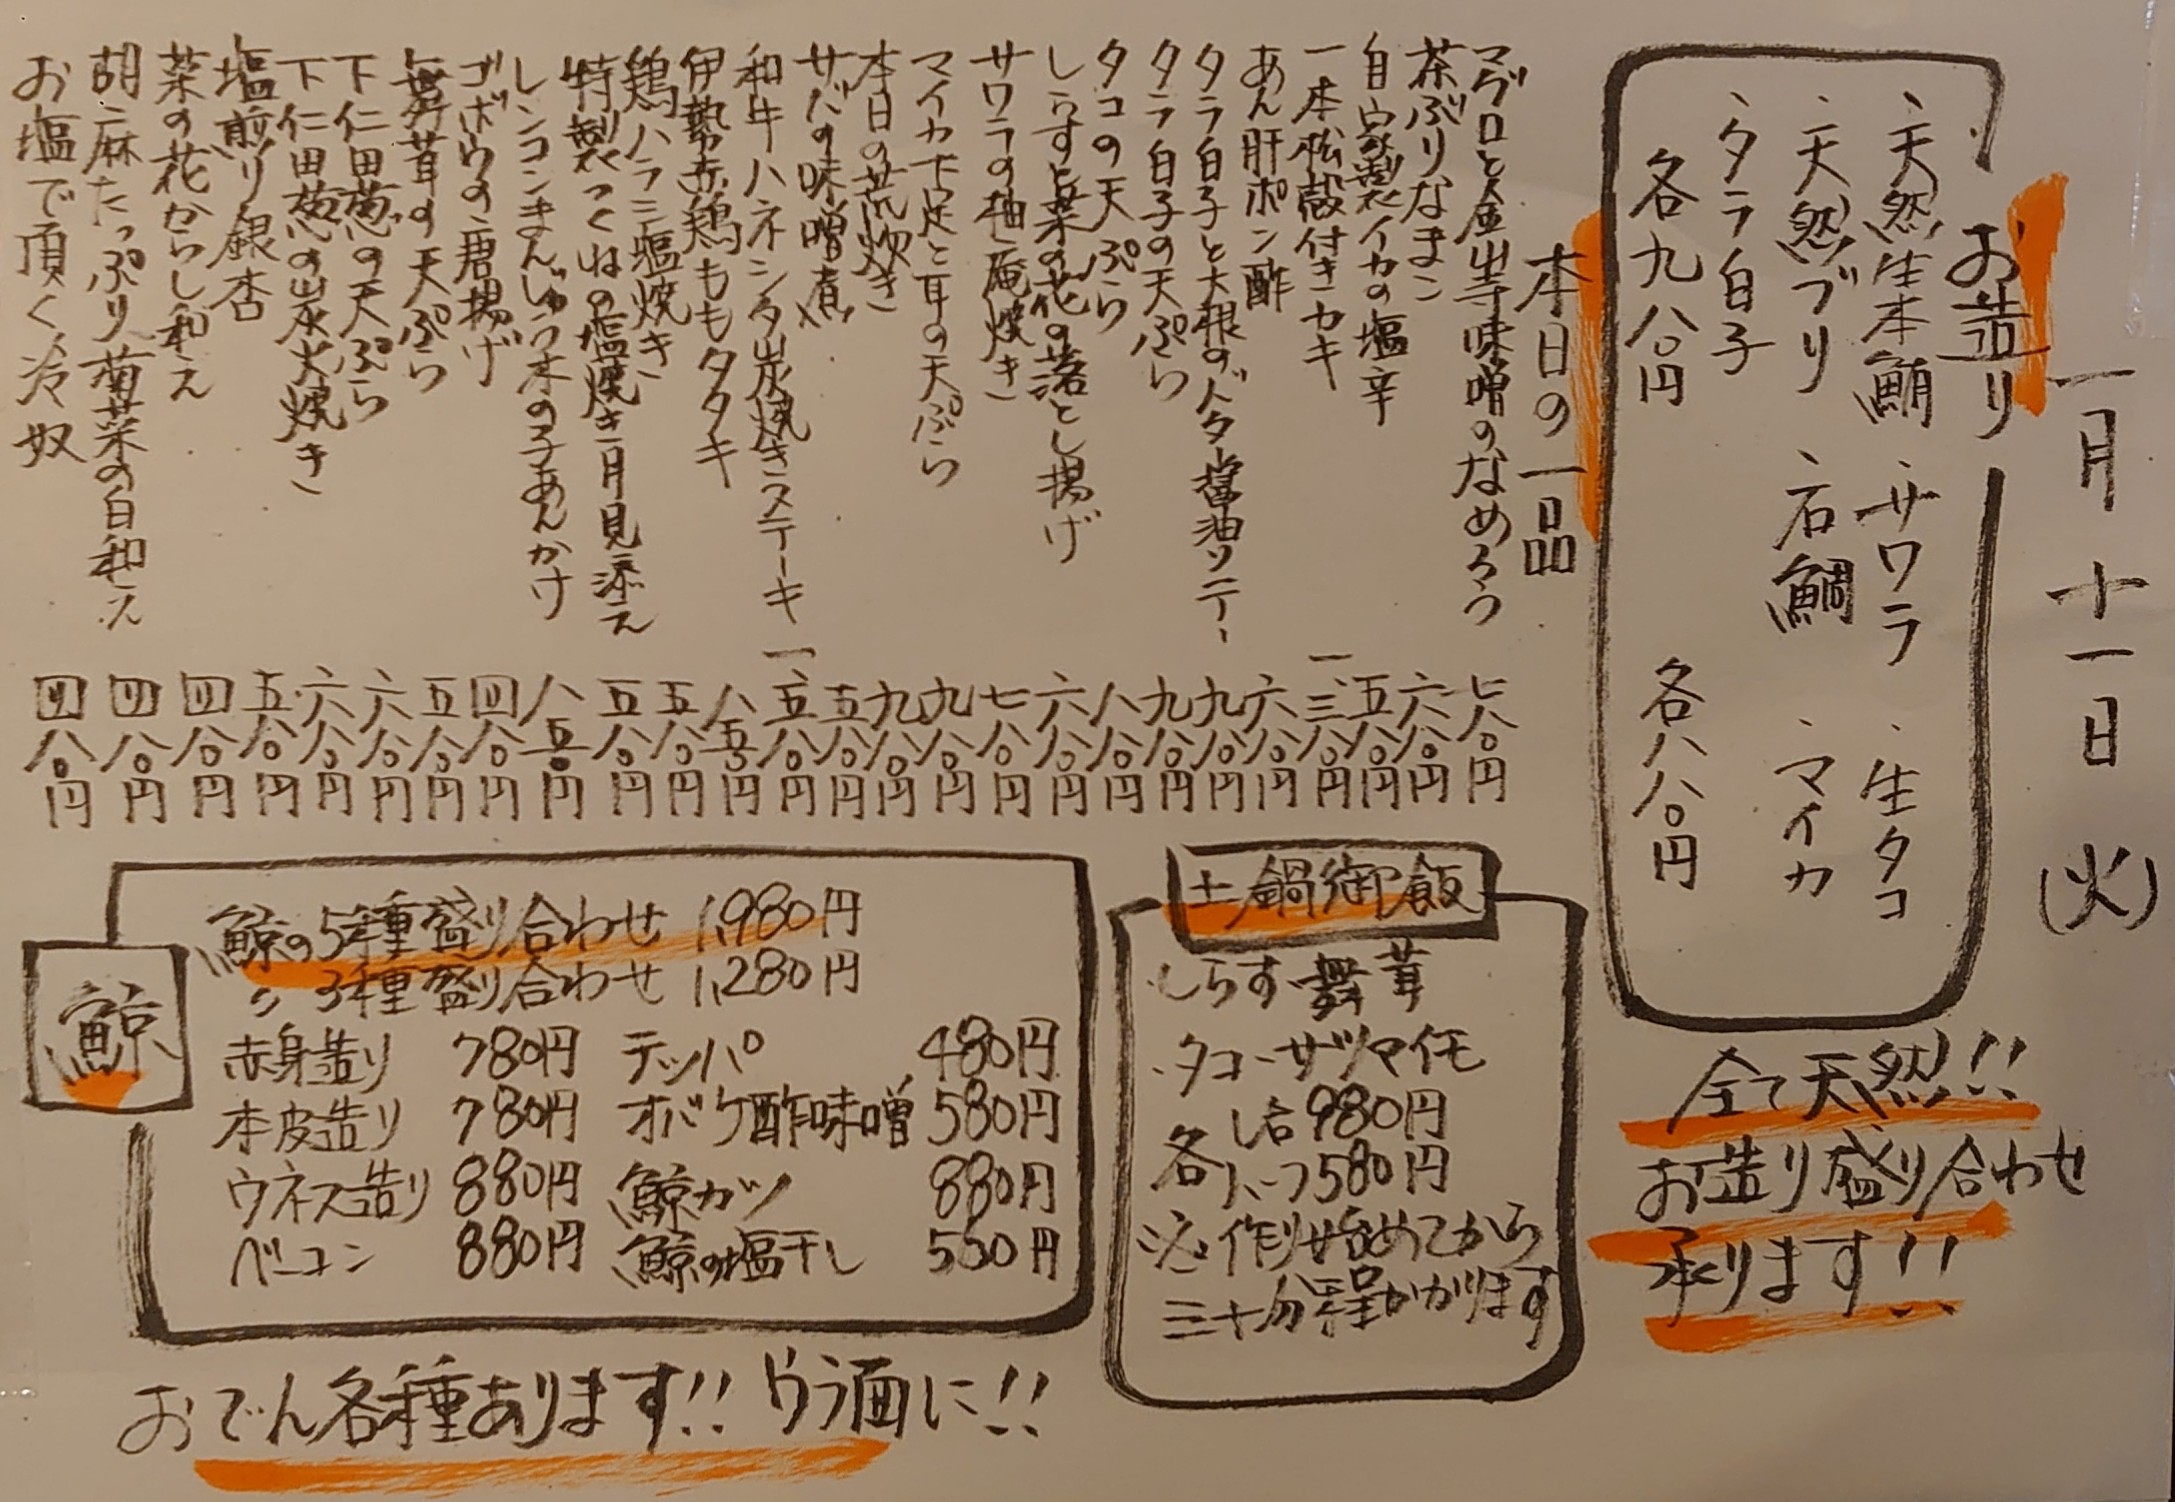 一月十一日(火)
お造り
、天然生本鮪 、サワラ 、生タコ
、天然ブリ 、石鯛 、マイカ
、タラ白子
各九八〇円 各八八〇円
全て天然!!
お造り盛り合わせ
承ります!!
本日の一品
マグロと金山寺味噌のなめろう 七八〇円
茶ぶりなまこ 六八〇円
自家製イカの塩辛 五八〇円
一本松殻付きカキ 一、三八〇円
あん肝ポン酢 六八〇円
タラ白子と大根のバター醤油ソテー 九八〇円
タラ白子の天ぷら 九八〇円
タコの天ぷら 八八〇円
しらすと菜の花の落とし揚げ 六八〇円
サワラの柚庵焼き 七八〇円
マイカ下足と耳の天ぷら 九八〇円
本日の荒炊き 九八〇円
サバの味噌煮 五八〇円
和牛ハネシタ炭焼きステーキ 一、五八〇円
伊勢赤鶏ももタタキ 八五〇円
鶏ハラミ塩焼き 五八〇円
特製つくねの塩焼き月見添え 五八〇円
レンコンまんじゅう木の子あんかけ 八五〇円
ゴボウの唐揚げ 四八〇円
舞茸の天ぷら 五八〇円
下仁田葱の天ぷら 六八〇円
下仁田葱の炭火焼き 六八〇円
塩煎り銀杏 五八〇円
菜の花からし和え 四八〇円
胡麻たっぷり菊菜の白和え 四八〇円
お塩で頂く冷奴 四八〇円
土鍋御飯
・しらす・舞茸
・タコ・サツマイモ
各 1合 980円
ハーフ 580円
※作り始めてから
三十分程かかります
鯨
鯨の5種盛り合わせ 1,980円
〃 3種盛り合わせ 1,280円
赤身造り 780円 テッパ 480円
本皮造り 780円 オバケ酢味噌 580円
ウネス造り 880円 鯨カツ 880円
ベーコン 880円 鯨の塩干し 550円
おでん各種あります!! ウラ面に!!